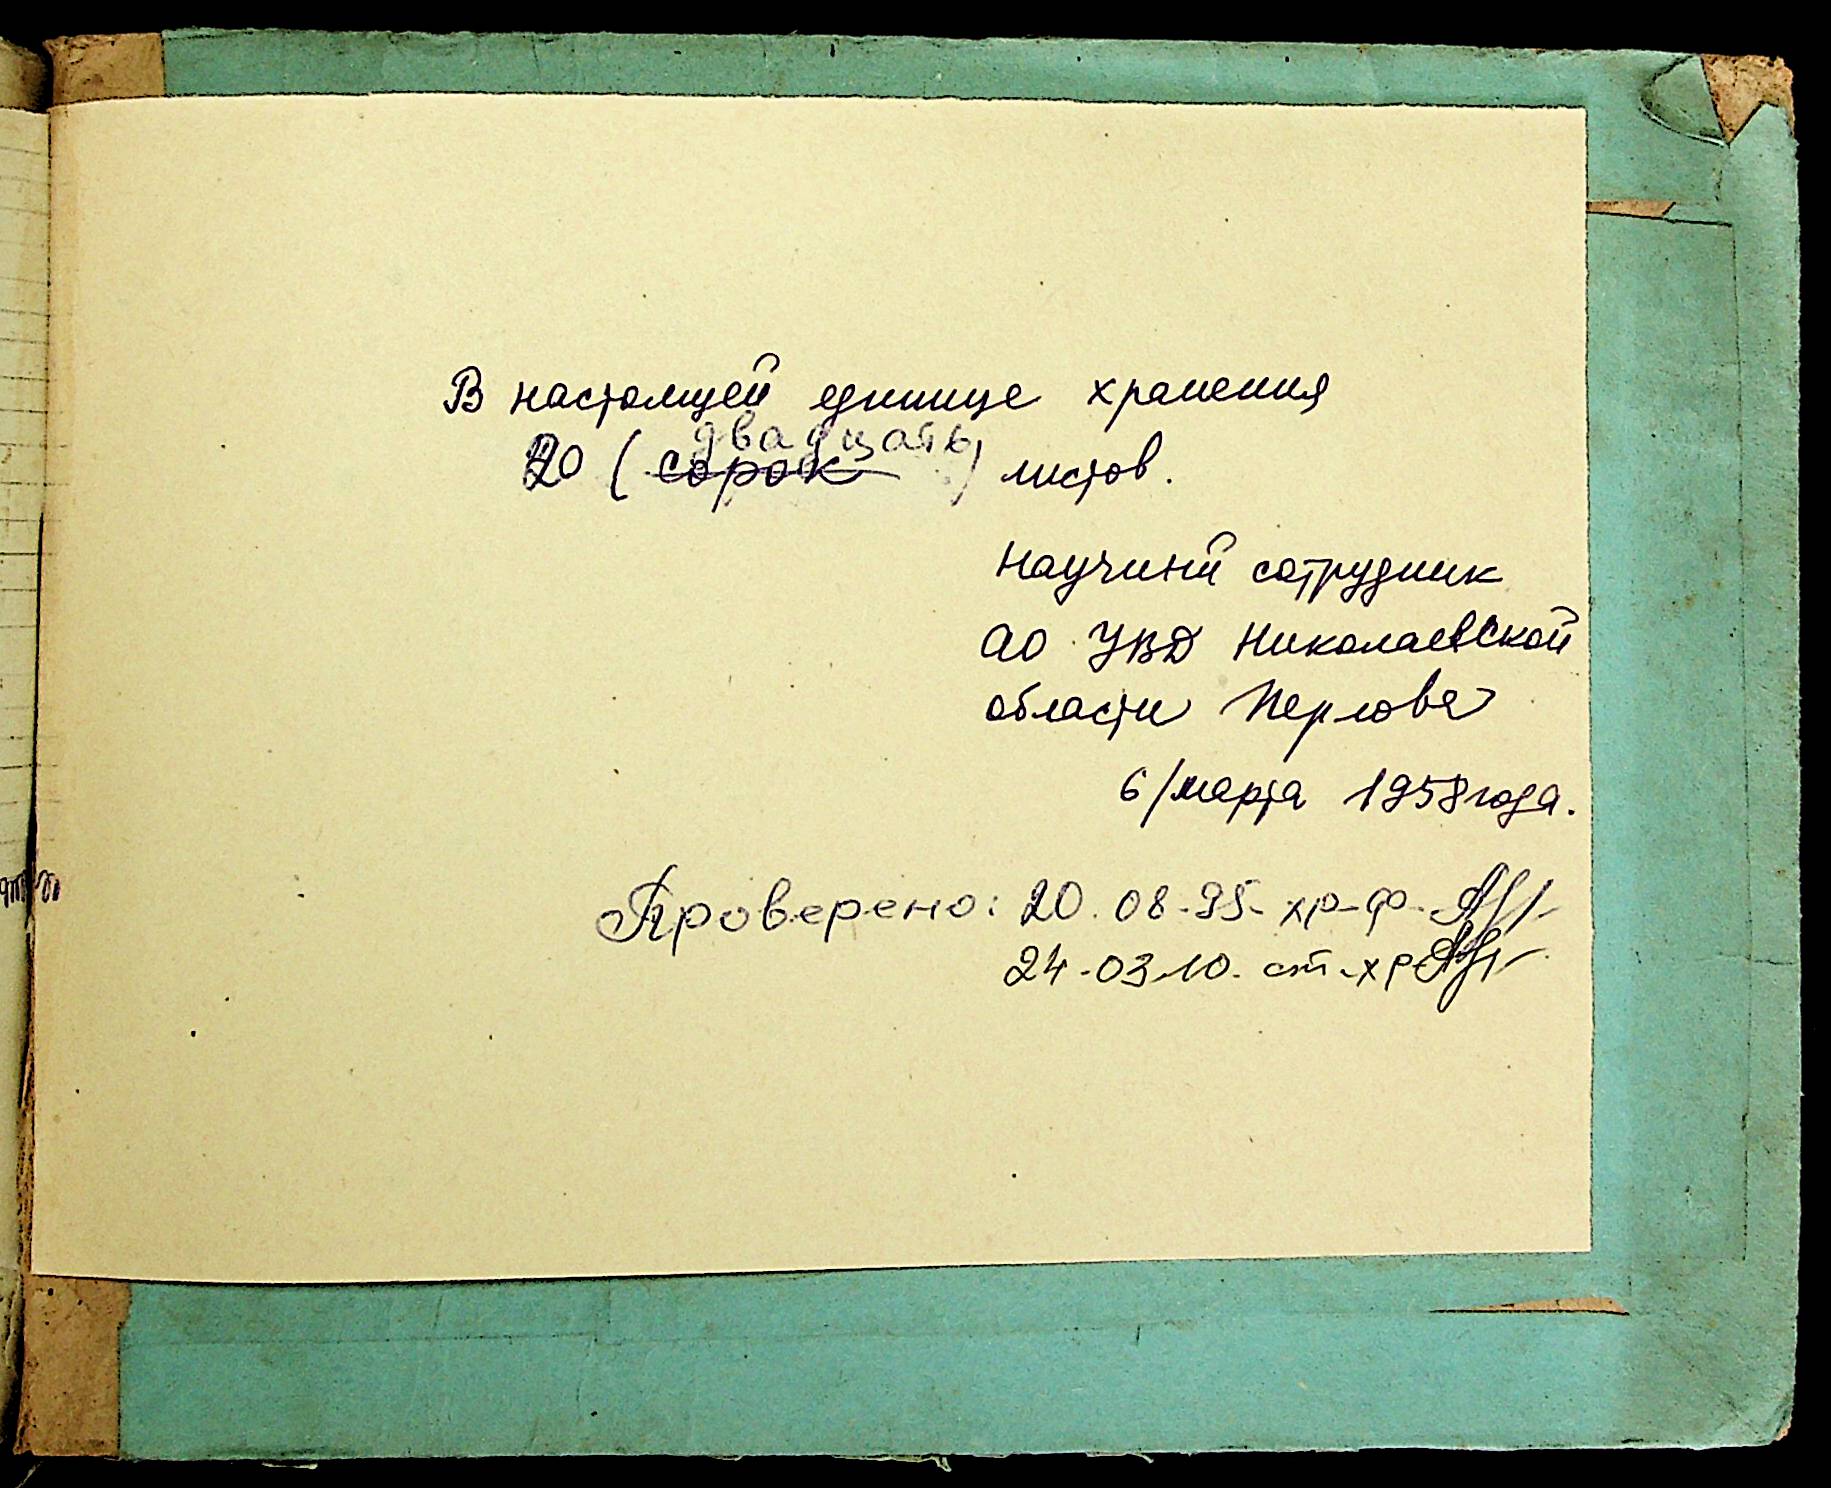 В настоящей единице хранения
двадцать
20 (сорок) листов.
научний сотрудник
АО УВД Николаевской
области Перлова
6/марта 1958 года.
Проверено: 20.08-95- хр-ф-
24-03.10. ст-хр